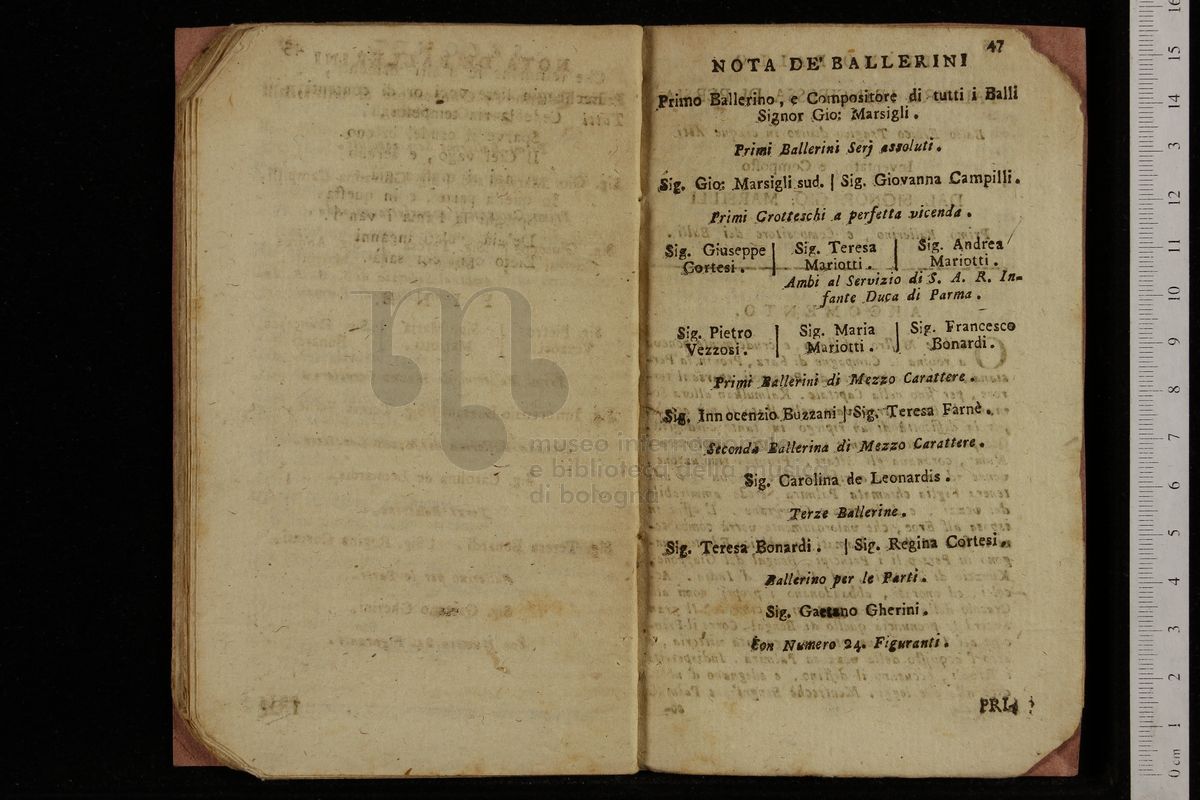 47
NOTA DE' BALLERINI
Primo Ballerino, e Compositore di tutti i Balli
Signor Gio: Marsigli.
Primi Ballerini Serj assoluti.
Sig. Gio: Marsigli sud. | Sig. Giovanna Campilli.
Primi Grotteschi a perfetta vicenda.
Sig. Giuseppe Cortesi. | Sig. Teresa Mariotti. | Sig. Andrea Mariotti.
Ambi al Servizio di S. A. R. In-
fante Duca di Parma.
Sig. Pietro Vezzosi. | Sig. Maria Mariotti. | Sig. Francesco Bonardi.
Primi Ballerini di Mezzo Carattere.
Sig. Innocenzio Buzzani | Sig. Teresa Farnè.
Seconda Ballerina di Mezzo Carattere.
Sig. Carolina de Leonardis.
Terze Ballerine.
Sig. Teresa Bonardi. | Sig. Regina Cortesi.
Ballerino per le Parti.
Sig. Gaetano Gherini.
Con Numero 24. Figuranti.
PRI-
museo internazionale
e biblioteca della musica
di bologna
0 cm 1 2 3 4 5 6 7 8 9 10 11 12 13 14 15 16